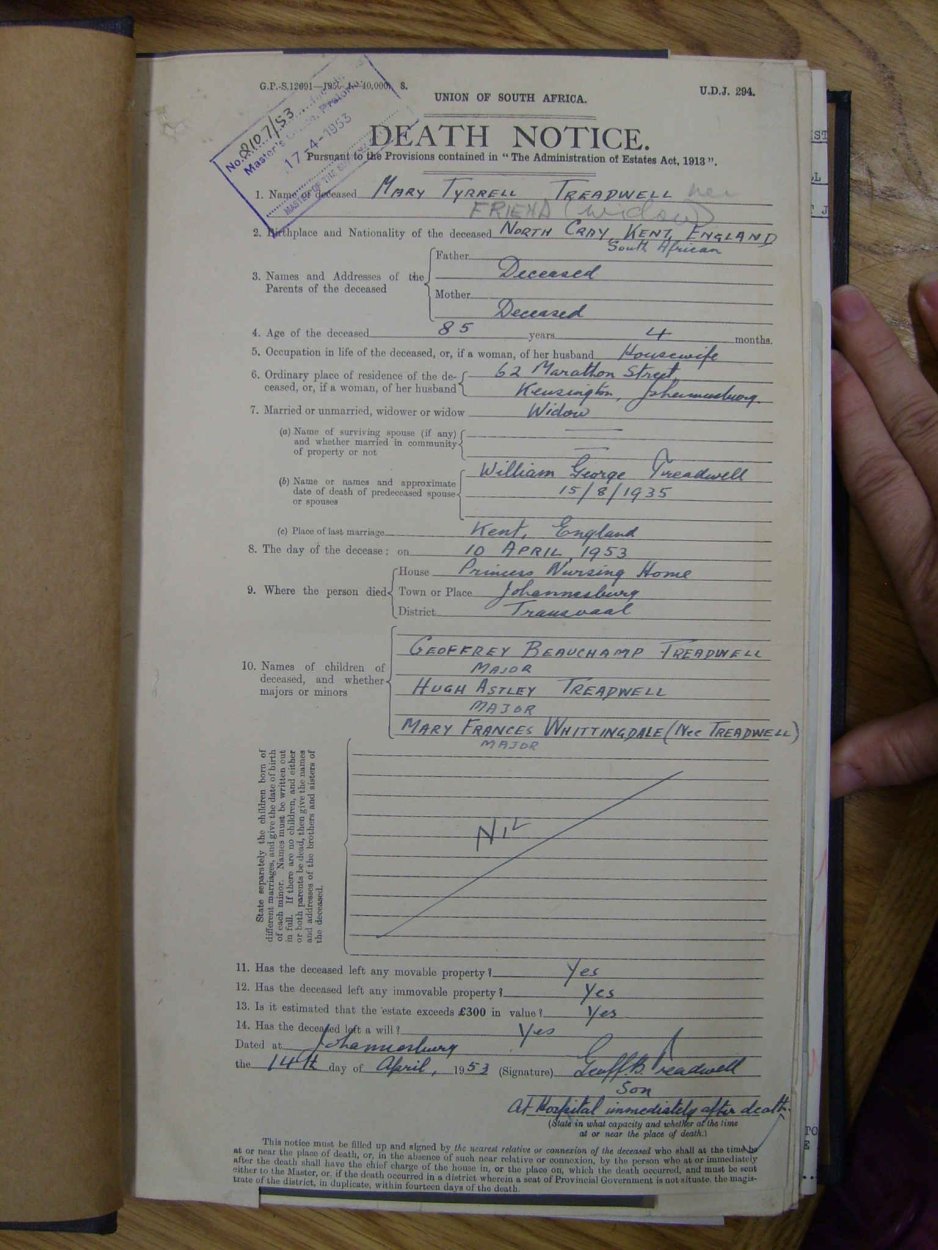 G.P.-S.12091—195 40,000. S.
UNION OF SOUTH AFRICA.
U.D.J. 294.
No. 2107/53
Master's
17-4-1953
MASTER OF THE
DEATH NOTICE.
Pursuant to the Provisions contained in "The Administration of Estates Act, 1913".
1. Name of deceased MARY TYRRELL TREADWELL nee
FRIEND (widow)
2. Birthplace and Nationality of the deceased NORTH CRAY KENT, ENGLAND
South African
3. Names and Addresses of the Parents of the deceased
Father
Deceased
Mother
Deceased
4. Age of the deceased 85 years 4 months.
5. Occupation in life of the deceased, or, if a woman, of her husband Housewife
6. Ordinary place of residence of the de- 62 Marathon Street,
ceased, or, if a woman, of her husband Kensington, Johannesburg.
7. Married or unmarried, widower or widow Widow
(a) Name of surviving spouse (if any)
and whether married in community
of property or not
(b) Name or names and approximate William George Treadwell
date of death of predeceased spouse 15/8/1935
or spouses
(c) Place of last marriage Kent, England
8. The day of the decease: on 10 APRIL, 1953
9. Where the person died
House Princess Nursing Home
Town or Place Johannesburg
District Transvaal
10. Names of children of
deceased, and whether
majors or minors
GEOFFREY BEAUCHAMP TREADWELL
MAJOR
HUGH ASTLEY TREADWELL
MAJOR
MARY FRANCES WHITTINGDALE (Nee TREADWELL)
MAJOR
State separately the children born of
different marriages, and give the date of birth
of each minor. Names must be written out
in full. If there are no children, and either
or both parents be dead, then give the names
and addresses of the brothers and sisters of
the deceased.
NIL
11. Has the deceased left any movable property? Yes
12. Has the deceased left any immovable property? Yes
13. Is it estimated that the estate exceeds £300 in value? Yes
14. Has the deceased left a will? Yes
Dated at Johannesburg
the 14th day of April, 1953 (Signature) Geoff. B. Treadwell
Son
At Hospital immediately after death.
(State in what capacity and whether at the time
at or near the place of death.)
This notice must be filled up and signed by the nearest relative or connexion of the deceased who shall at the time be
at or near the place of death, or, in the absence of such near relative or connexion, by the person who at or immediately
after the death shall have the chief charge of the house in, or the place on, which the death occurred, and must be sent
either to the Master, or, if the death occurred in a district wherein a seat of Provincial Government is not situate, the magis-
trate of the district, in duplicate, within fourteen days of the death.